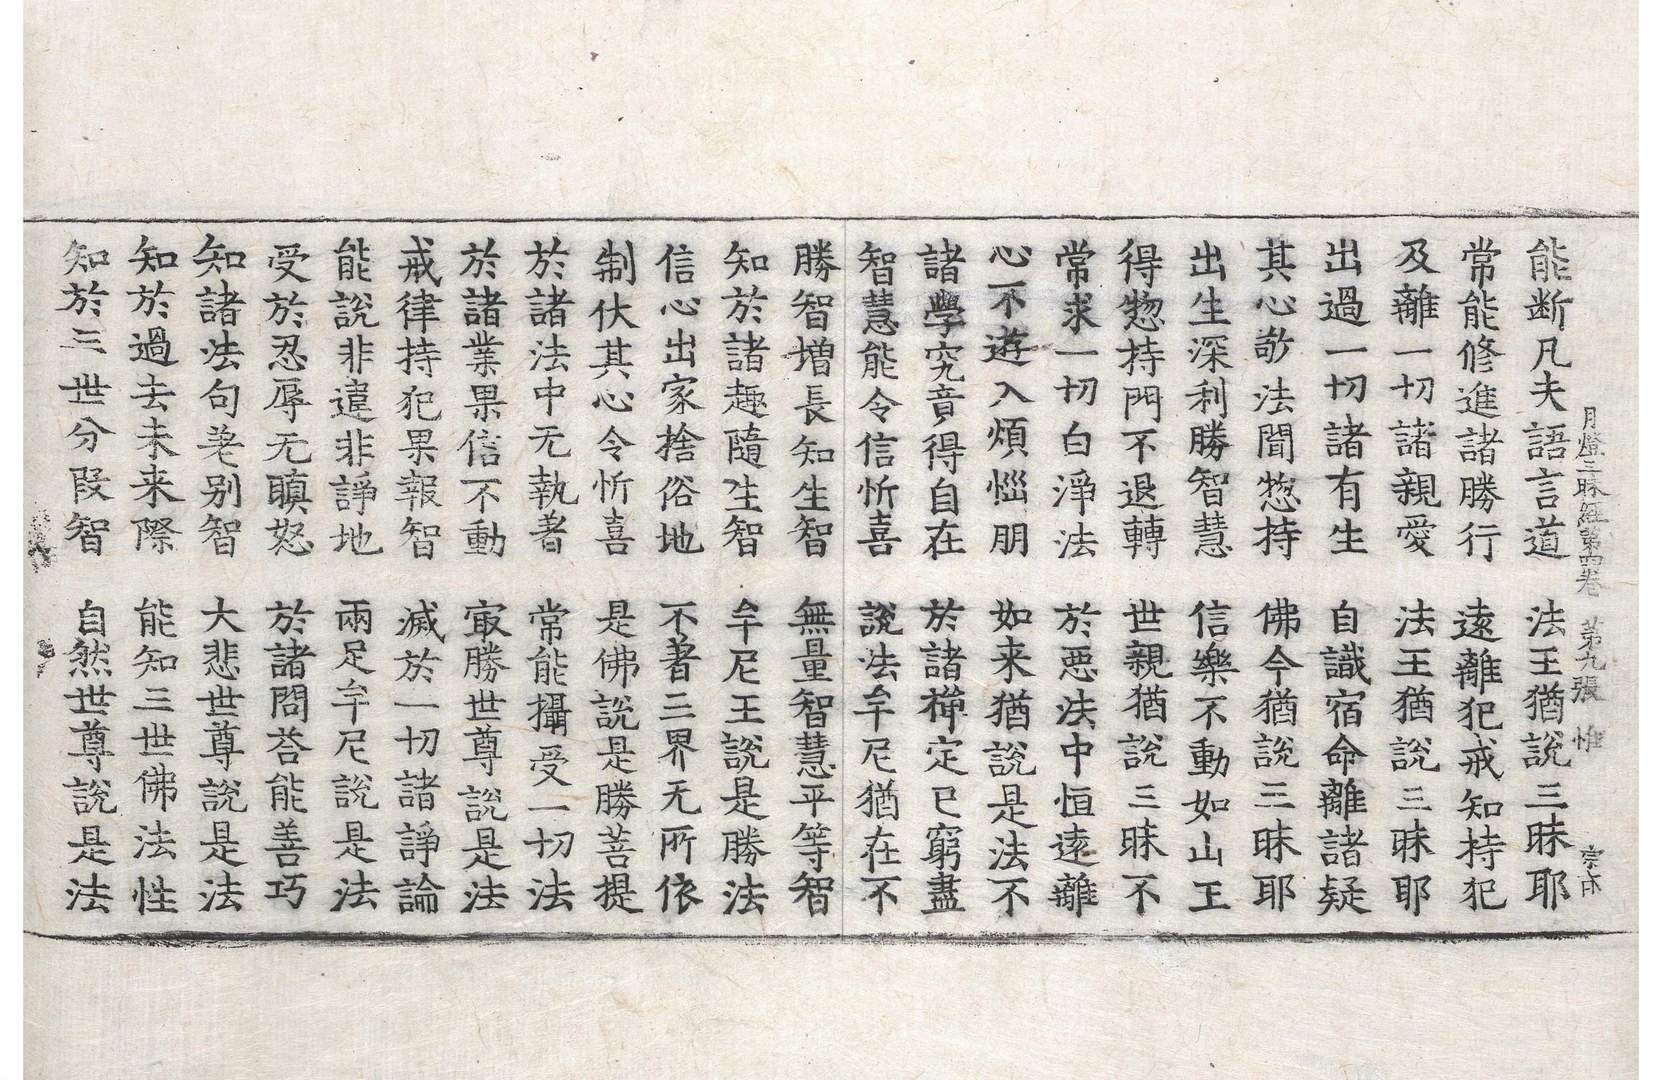 月燈三昧經第四卷 第九張 惟 宗古
能断凡夫語言道 法王猶說三昧耶
常能修進諸勝行 遠離犯戒知持犯
及離一切諸親愛 法王猶說三昧耶
出過一切諸有生 自識宿命離諸疑
其心勍法聞惣持 佛今猶說三昧耶
出生深利勝智慧 信樂不動如山王
得惣持門不退轉 世親猶說三昧不
常求一切白淨法 於惡法中恒遠離
心不遊入煩惱朋 如来猶說是法不
諸學究竟得自在 於諸禅定已窮盡
智慧能令信忻喜 說法牟尼猶在不
勝智增長知生智 無量智慧平等智
知於諸趣隨生智 牟尼王說是勝法
信心出家捨俗地 不著三界无所依
制伏其心令忻喜 是佛說是勝菩提
於諸法中无執著 常能攝受一切法
於諸業果信不動 㝡勝世尊說是法
戒律持犯果報智 滅於一切諸諍論
能說非違非諍地 兩足牟尼說是法
受於忍辱无瞋怒 於諸問荅能善巧
知諸法句差别智 大悲世尊說是法
知於過去未来際 能知三世佛法性
知於三世分段智 自然世尊說是法